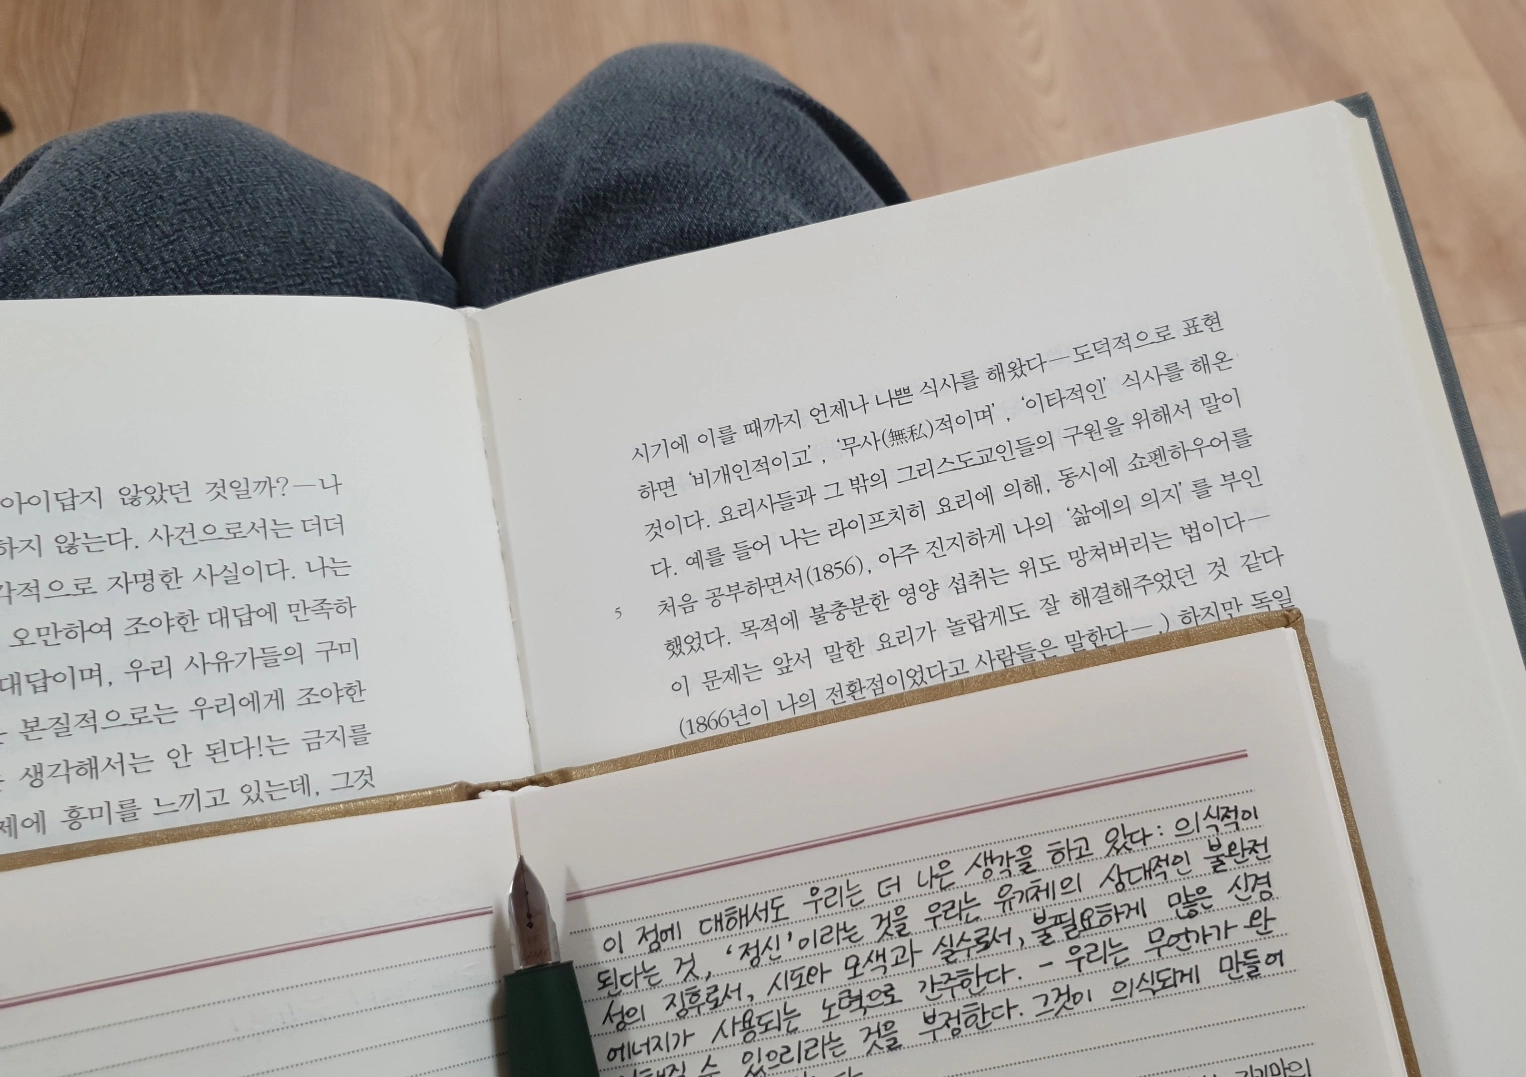 아이답지 않았던 것일까?—나
하지 않는다. 사건으로서는 더더
각적으로 자명한 사실이다. 나는
오만하여 조야한 대답에 만족하
대답이며, 우리 사유가들의 구미
본질적으로는 우리에게 조야한
생각해서는 안 된다!는 금지를
제에 흥미를 느끼고 있는데, 그것
시기에 이를 때까지 언제나 나쁜 식사를 해왔다—도덕적으로 표현
하면 ‘비개인적이고’, ‘무사(無私)적이며’, ‘이타적인’ 식사를 해온
것이다. 요리사들과 그 밖의 그리스도교인들의 구원을 위해서 말이
다. 예를 들어 나는 라이프치히 요리에 의해, 동시에 쇼펜하우어를
5 처음 공부하면서(1856), 아주 진지하게 나의 ‘삶에의 의지’를 부인
했었다. 목적에 불충분한 영양 섭취는 위도 망쳐버리는 법이다—
이 문제는 앞서 말한 요리가 놀랍게도 잘 해결해주었던 것 같다
(1866년이 나의 전환점이었다고 사람들은 말한다—.) 하지만 독일
이 점에 대해서도 우리는 더 나은 생각을 하고 있다: 의식적이
된다는 것, ‘정신’이라는 것을 우리는 유기체의 상대적인 불완전
성의 징후로서, 시도와 모색과 실수로서, 불필요하게 많은 신경
에너지가 사용되는 노력으로 간주한다. - 우리는 무언가가 완
수 있으리라는 것을 부정한다. 그것이 의식되게 만들어